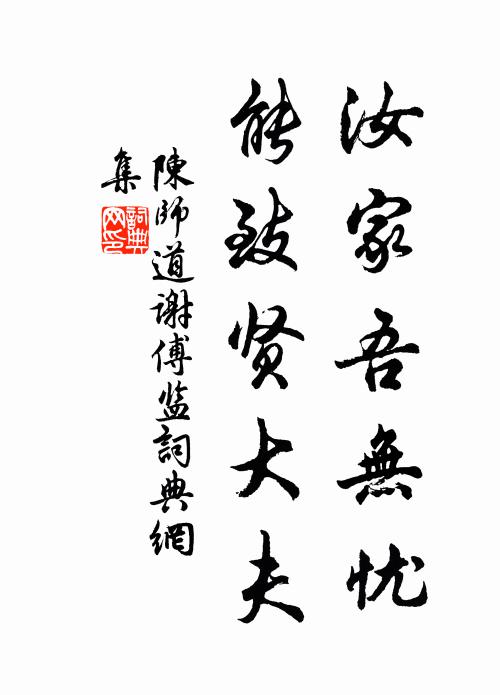 汝家吾無忧
能致贤大夫
陳師道谢傅监詞典網
集
詞典網印